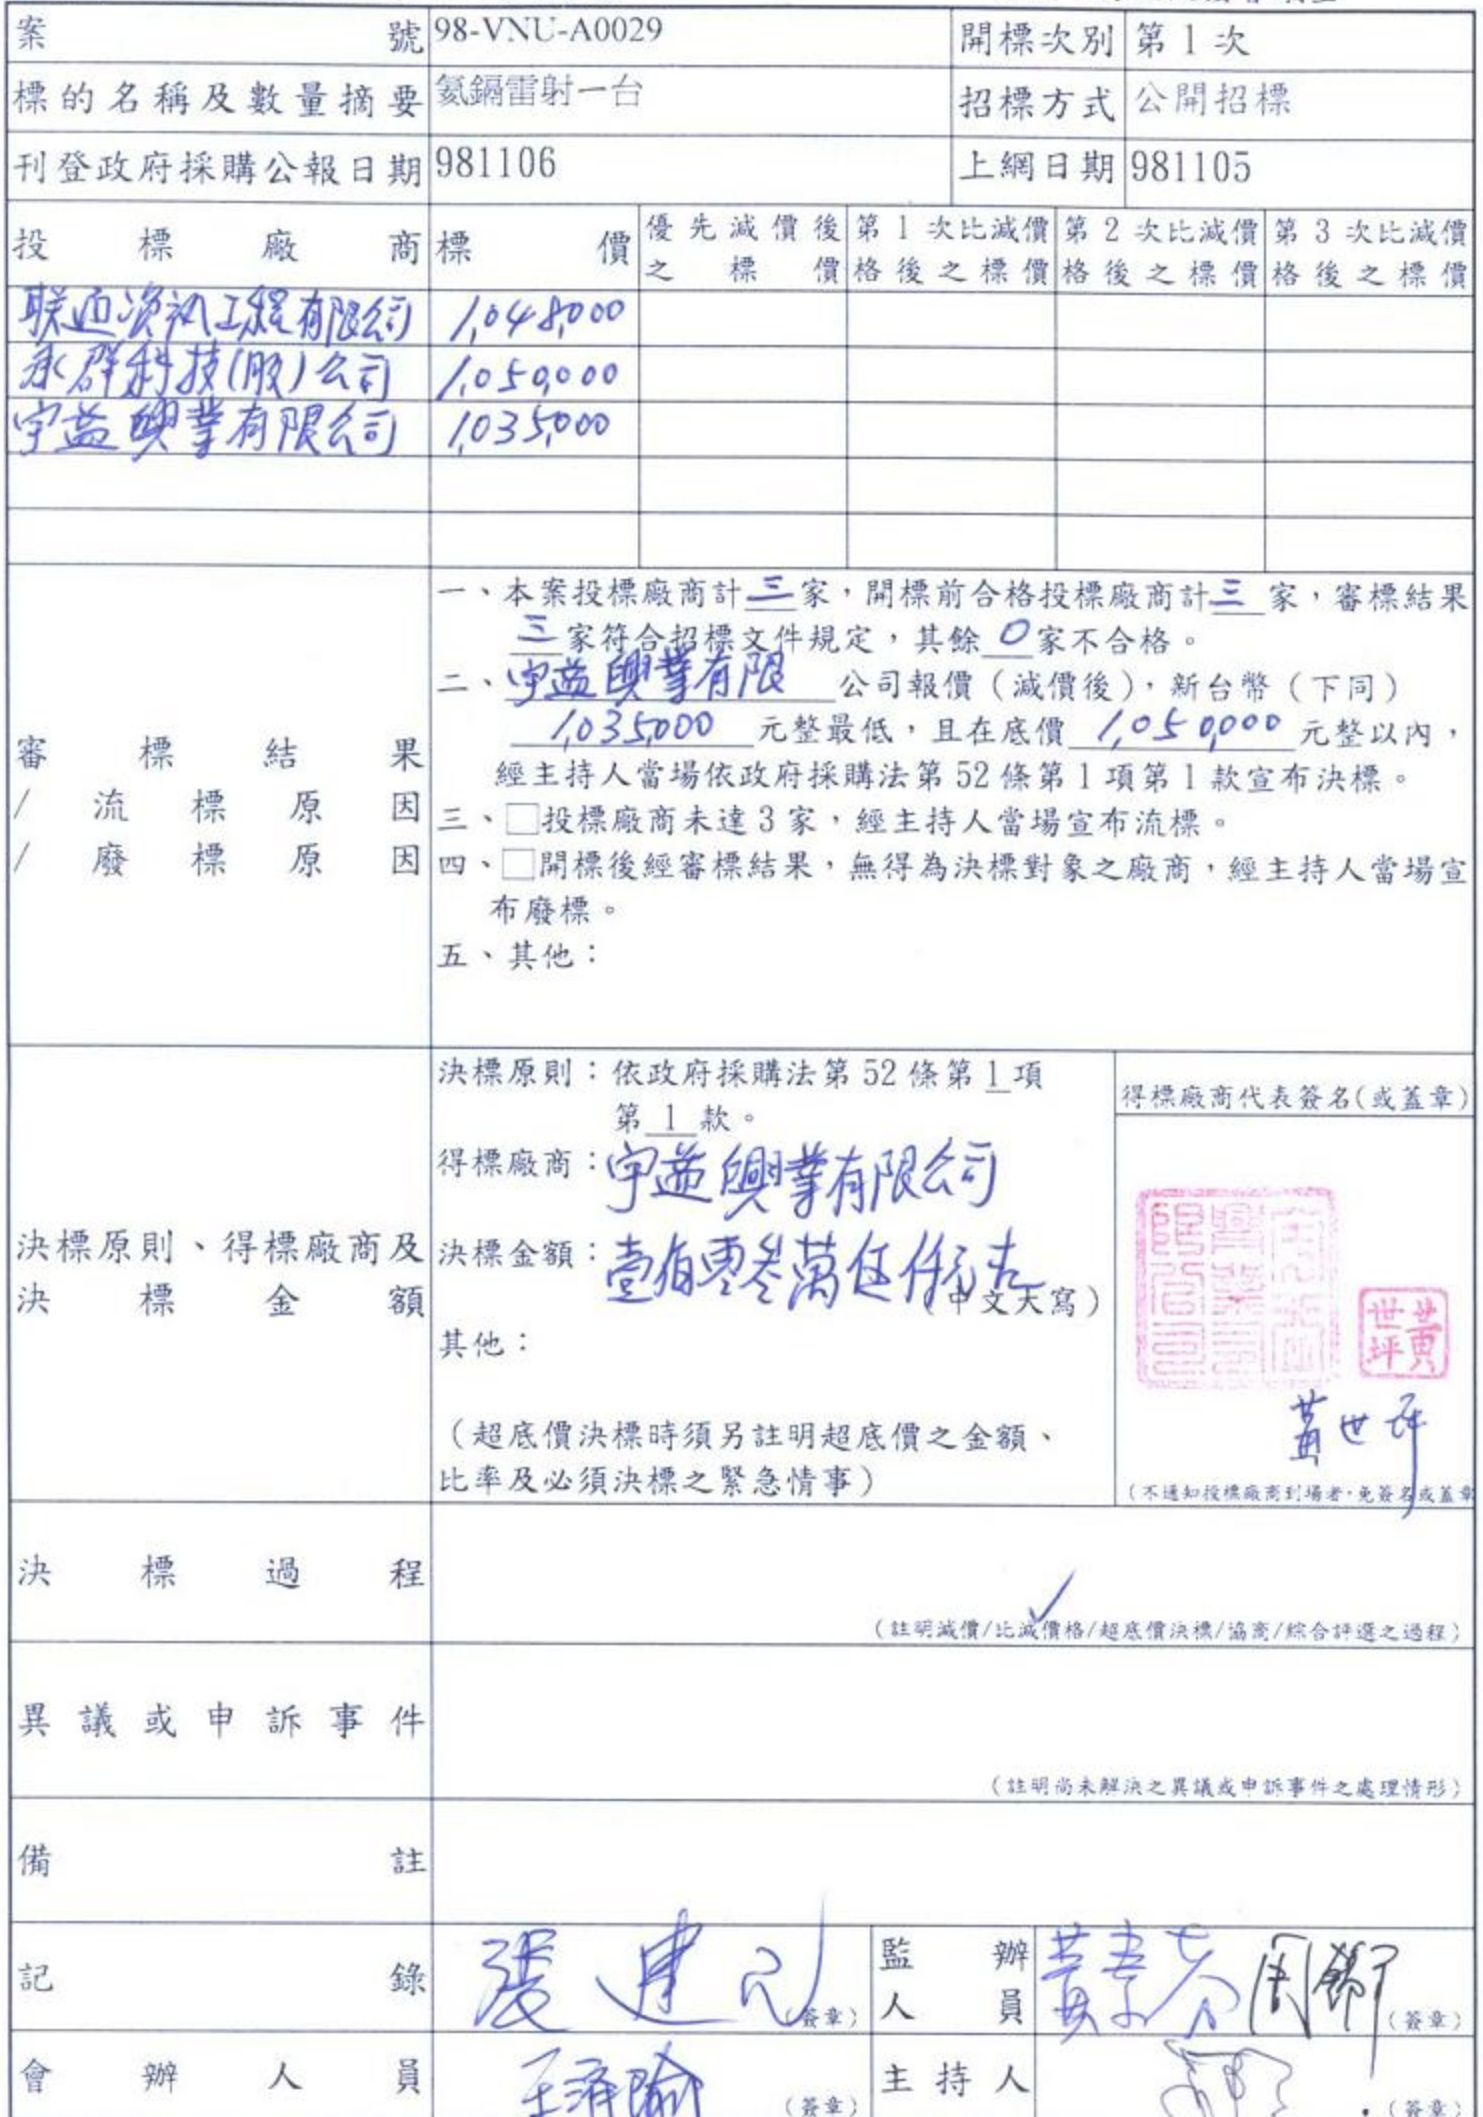 案號 98-VNU-A0029 開標次別 第1次
標的名稱及數量摘要 氦鎘雷射一台 招標方式 公開招標
刊登政府採購公報日期 981106 上網日期 981105
投標廠商 標價 優先減價後之標價 第1次比減價格後之標價 第2次比減價格後之標價 第3次比減價格後之標價
工程有限公司 1,048,000
承群科技(股)公司 1,050,000
宇益興業有限公司 1,035,000
審標結果
/流標原因
/廢標原因
一、本案投標廠商計三家,開標前合格投標廠商計三家,審標結果
三家符合招標文件規定,其餘0家不合格。
二、宇益興業有限公司報價(減價後),新台幣(下同)
1,035,000元整最低,且在底價1,050,000元整以內,
經主持人當場依政府採購法第52條第1項第1款宣布決標。
三、□投標廠商未達3家,經主持人當場宣布流標。
四、□開標後經審標結果,無得為決標對象之廠商,經主持人當場宣
布廢標。
五、其他:
決標原則、得標廠商及
決標金額
決標原則:依政府採購法第52條第1項
第1款。
得標廠商:宇益興業有限公司
決標金額:壹佰零参萬伍仟元
(中文大寫)
其他:
(超底價決標時須另註明超底價之金額、
比率及必須決標之緊急情事)
得標廠商代表簽名(或蓋章)
宇益興業有限公司
黃世坪
黃世坪
(不通知投標廠商到場者,免簽名或蓋章
決標過程
(註明減價/比減價格/超底價決標/協商/綜合評選之過程)
異議或申訴事件
(註明尚未解決之異議或申訴事件之處理情形)
備註
記錄 張建 (簽章) 監辦人員 黃 周 (簽章)
會辦人員 王 (簽章) 主持人 (簽章)